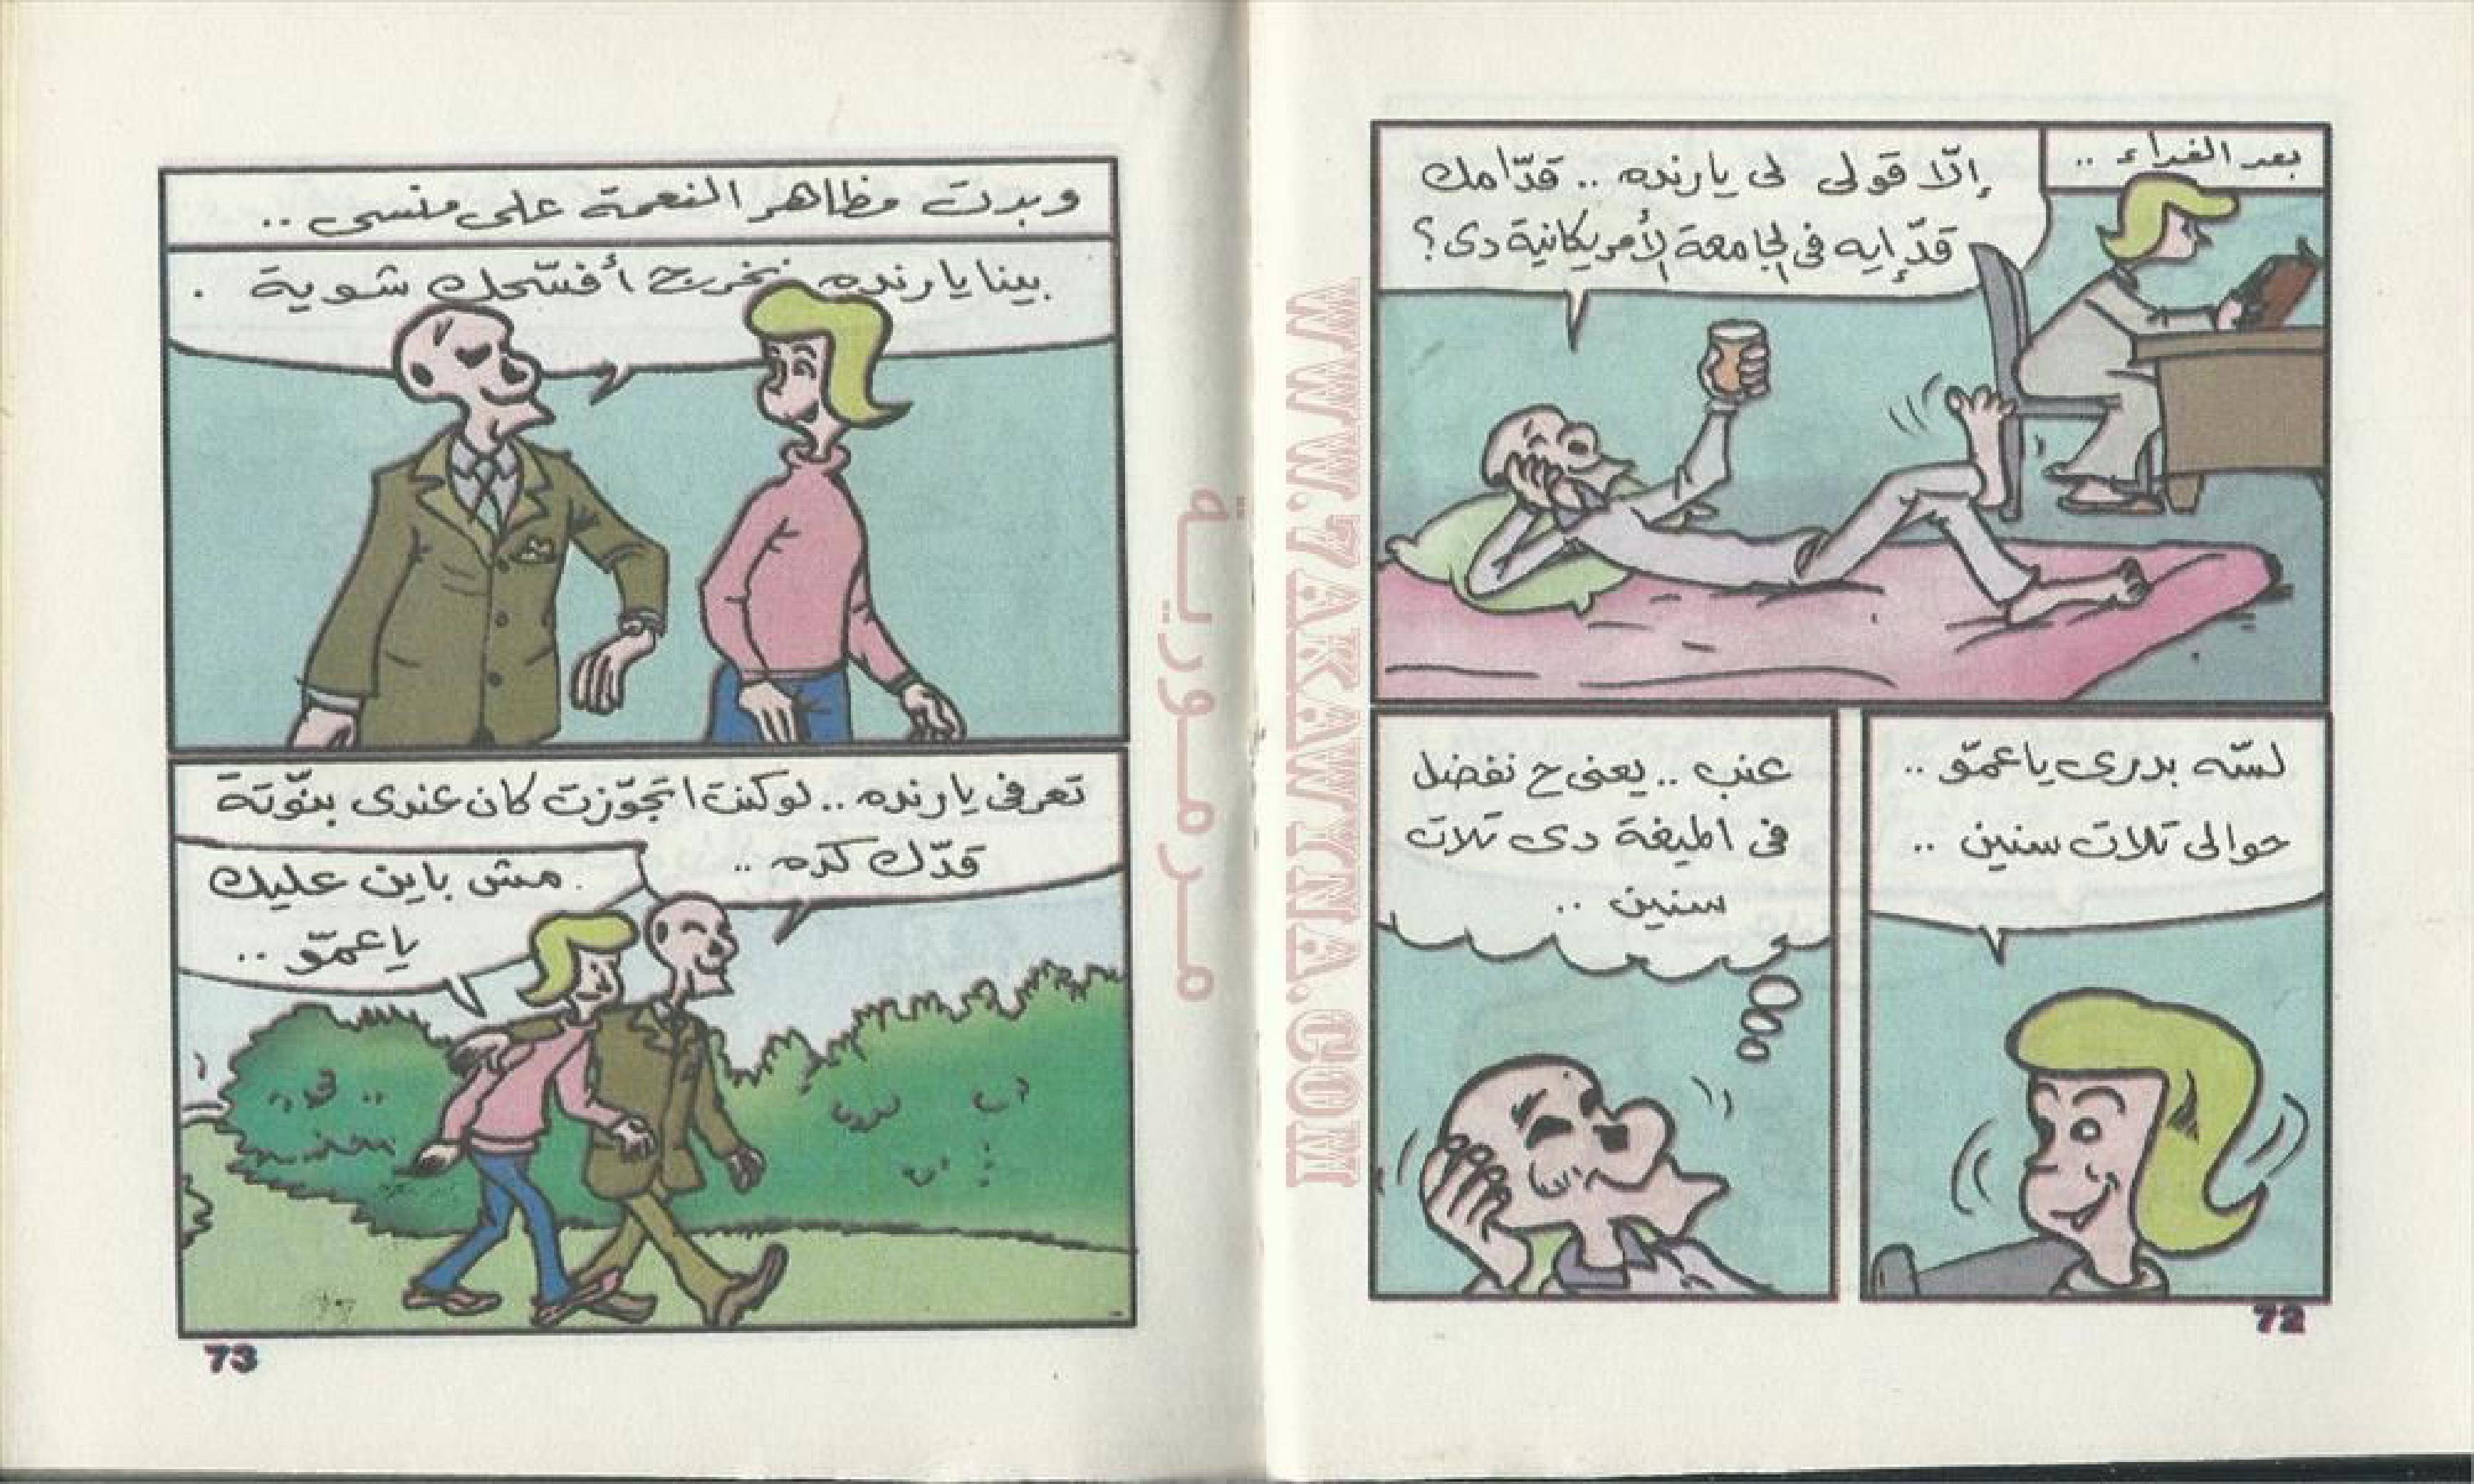 بعد الغداء ..
إلّا قولى لى يارنده .. قدّامك
قدّ إيه فى الجامعة الأمريكانية دى؟
لسّه بدرى ياعمّو ..
حوالى تلات سنين ..
عنب .. يعنى ح نفضل
فى الميغة دى تلات
سنين ..
72
WWW.7AKAWINA.COM
مرمورية
وبدت مظاهر النعمة على منسى ..
بينا يارنده نخرج أفسّحك شوية .
تعرفى يارنده .. لوكنت اتجوّزت كان عندى بنّوتة
قدّك كده ..
مش باين عليك
ياعمّو ..
73